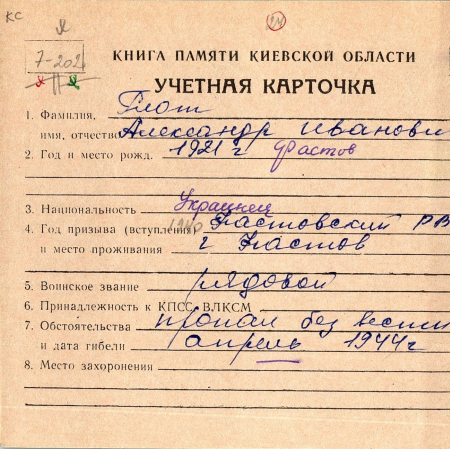 КС
24
7-202
КНИГА ПАМЯТИ КИЕВСКОЙ ОБЛАСТИ
УЧЕТНАЯ КАРТОЧКА
1. Фамилия, Глот
имя, отчество Александр Иванови
2. Год и место рожд. 1921 г Фастов
3. Национальность Украинец
4. Год призыва (вступления) 1940 Фастовский РВ
и место проживания г Фастов
5. Воинское звание рядовой
6. Принадлежность к КПСС ВЛКСМ
7. Обстоятельства пропал без вести
и дата гибели апрель 1944 г
8. Место захоронения